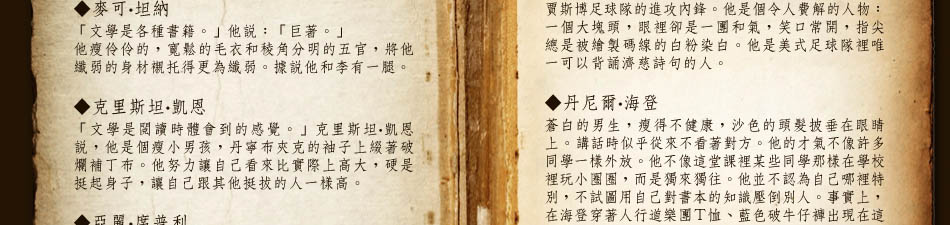 ◆麥可·坦納
「文學是各種書籍。」他說：「巨著。」
他瘦伶伶的，寬鬆的毛衣和稜角分明的五官，將他
纖弱的身材襯托得更為纖弱。據說他和李有一腿。
◆克里斯坦·凱恩
「文學是閱讀時體會到的感覺。」克里斯坦·凱恩
說，他是個瘦小男孩，丹寧布夾克的袖子上綴著破
爛補丁布。他努力讓自己看來比實際上高大，硬是
挺起身子，讓自己跟其他挺拔的人一樣高。
◆亞麗·席普利
賈斯博足球隊的進攻內鋒。他是個令人費解的人物：
一個大塊頭，眼裡卻是一團和氣，笑口常開，指尖
總是被繪製碼線的白粉染白。他是美式足球隊裡唯
一可以背誦濟慈詩句的人。
◆丹尼爾·海登
蒼白的男生，瘦得不健康，沙色的頭髮披垂在眼睛
上。講話時似乎從來不看著對方。他的才氣不像許多
同學一樣外放。他不像這堂課裡某些同學那樣在學校
裡玩小圈圈，而是獨來獨往。他並不認為自己哪裡特
別，不試圖用自己對書本的知識壓倒別人。事實上，
在海登穿著人行道樂團T恤、藍色破牛仔褲出現在這